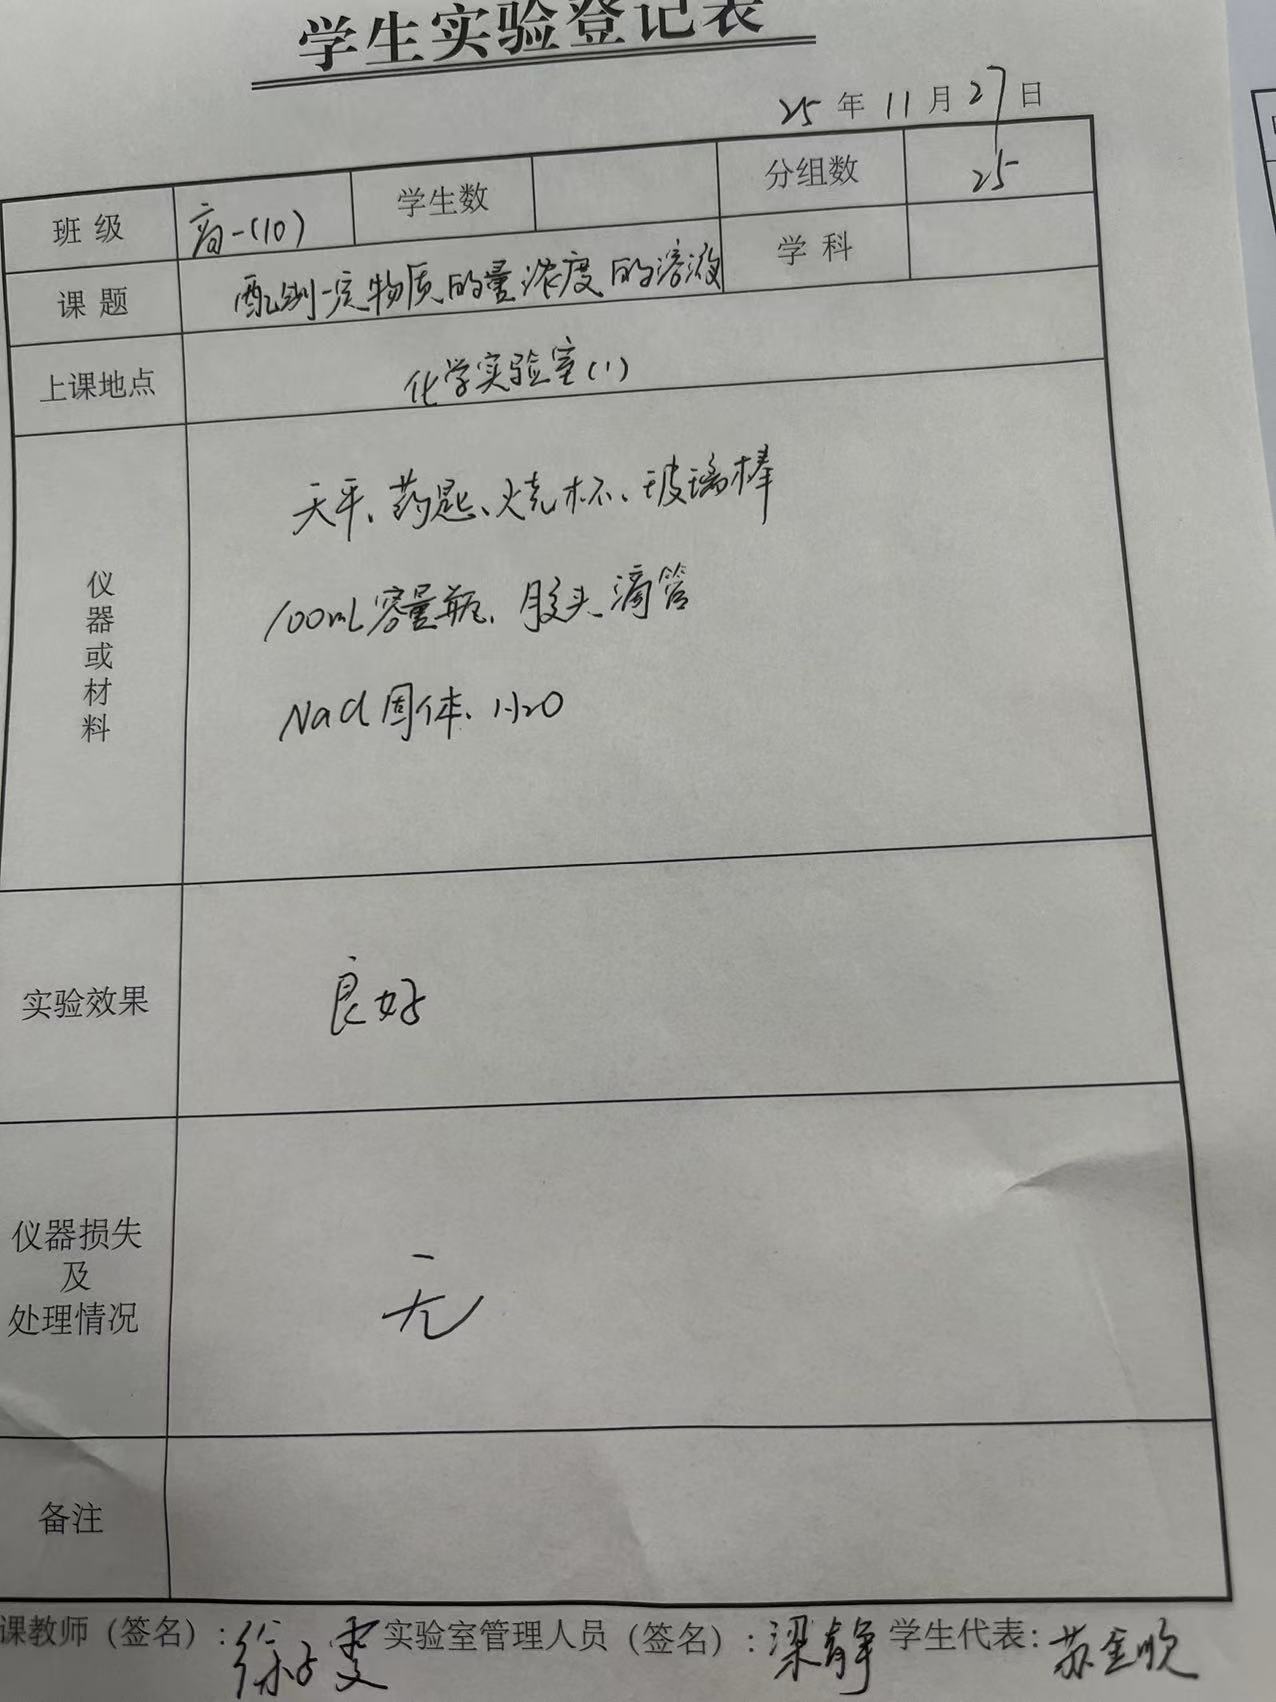 学生实验登记表
25年11月27日
班级 高一(10) 学生数 分组数 25
课题 配制一定物质的量浓度的溶液 学科
上课地点 化学实验室(1)
仪器或材料
天平、药匙、烧杯、玻璃棒
100mL容量瓶、胶头滴管
NaCl固体、H2O
实验效果 良好
仪器损失
及
处理情况
无
备注
课教师(签名): 徐子雯 实验室管理人员(签名): 梁静 学生代表: 苏金